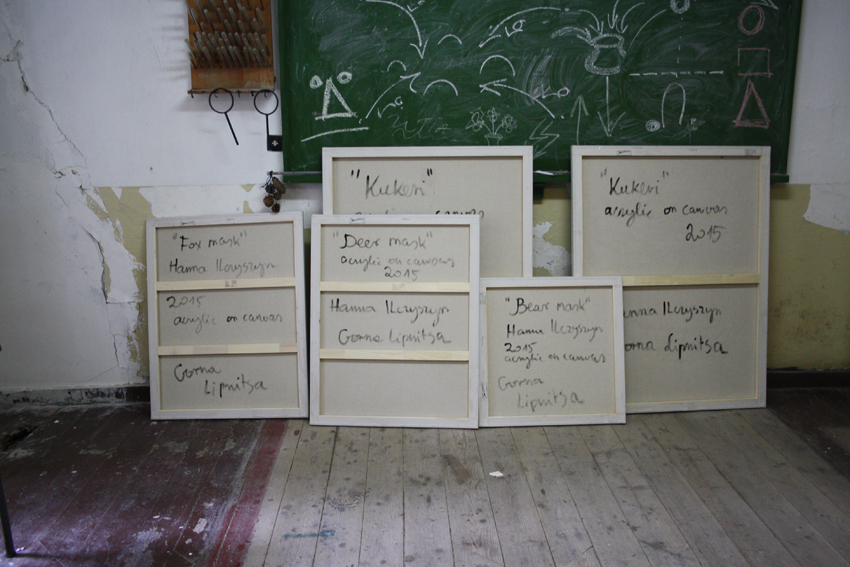 "Kukeri"
acrylic on canvas
"Kukeri"
acrylic on canvas
2015
Lipnitsa
"Fox mask"
Hanna Ilczyszyn
2015
acrylic on canvas
Gorna
Lipnitsa
"Deer mask"
acrylic on canvas
2015
Hanna Ilczyszyn
Gorna Lipnitsa
"Bear mask"
Hanna Ilczyszyn
2015
acrylic on canvas
Gorna
Lipnitsa